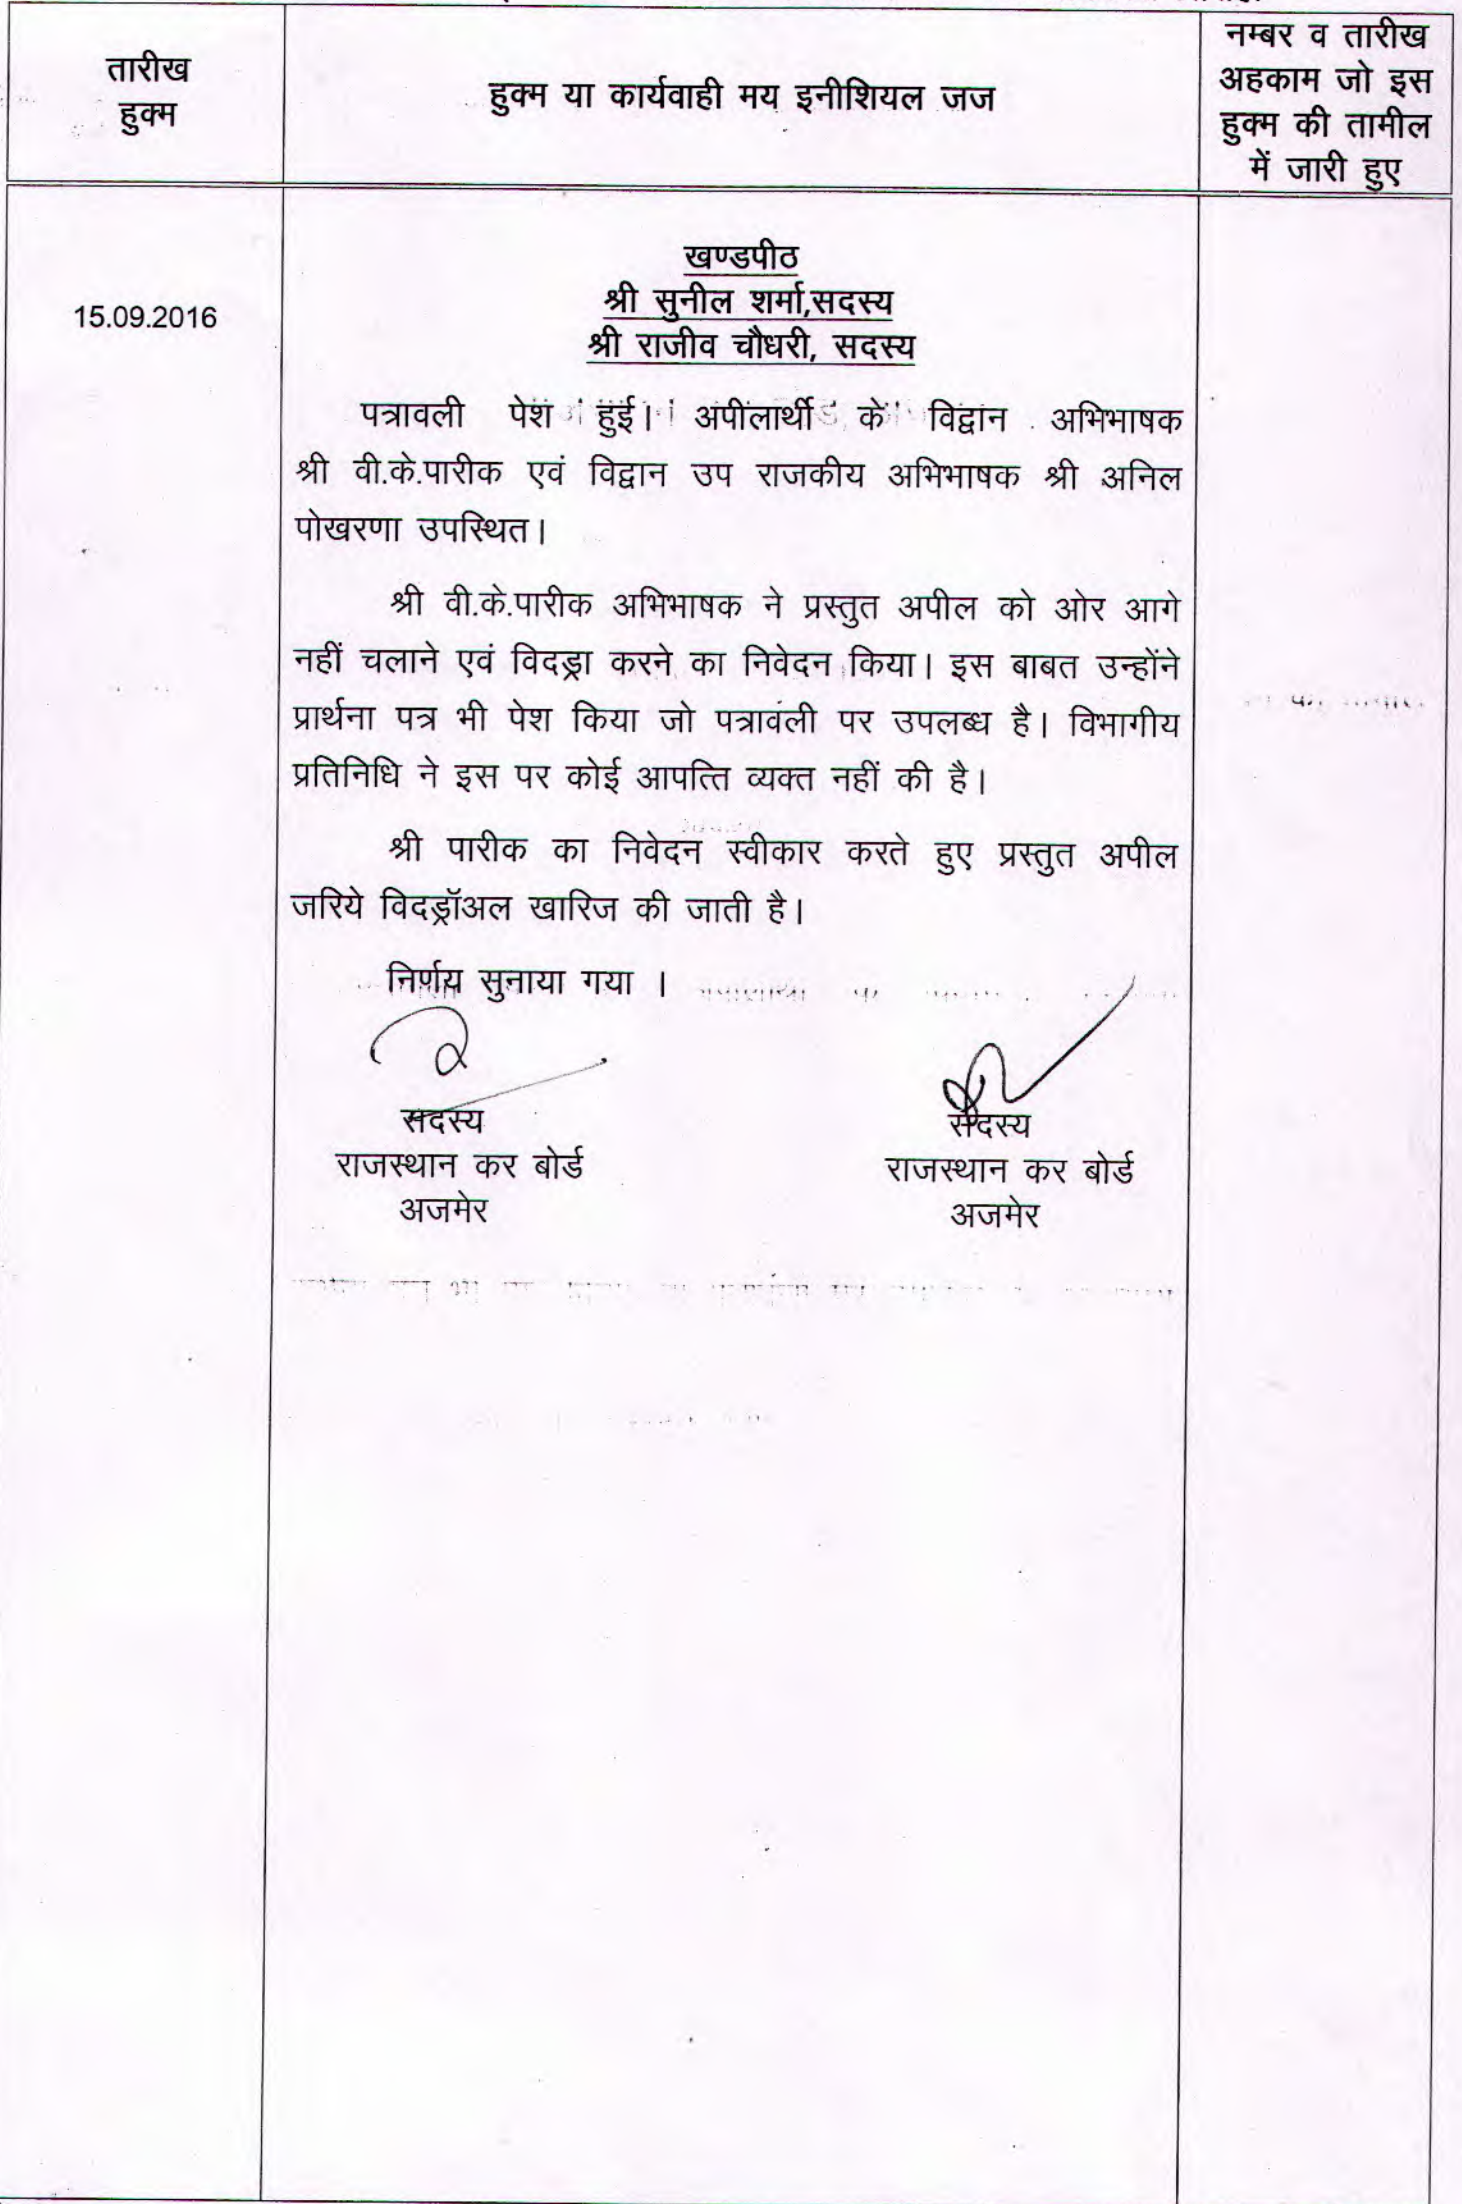 तारीख
हुक्म
हुक्म या कार्यवाही मय इनीशियल जज
नम्बर व तारीख
अहकाम जो इस
हुक्म की तामील
में जारी हुए
15.09.2016
खण्डपीठ
श्री सुनील शर्मा,सदस्य
श्री राजीव चौधरी, सदस्य
पत्रावली पेश हुई। अपीलार्थी के विद्वान अभिभाषक
श्री वी.के.पारीक एवं विद्वान उप राजकीय अभिभाषक श्री अनिल
पोखरणा उपस्थित।
श्री वी.के.पारीक अभिभाषक ने प्रस्तुत अपील को ओर आगे
नहीं चलाने एवं विदड्रा करने का निवेदन किया। इस बाबत उन्होंने
प्रार्थना पत्र भी पेश किया जो पत्रावली पर उपलब्ध है। विभागीय
प्रतिनिधि ने इस पर कोई आपत्ति व्यक्त नहीं की है।
श्री पारीक का निवेदन स्वीकार करते हुए प्रस्तुत अपील
जरिये विदड्रॉअल खारिज की जाती है।
निर्णय सुनाया गया ।
सदस्य
राजस्थान कर बोर्ड
अजमेर
सदस्य
राजस्थान कर बोर्ड
अजमेर